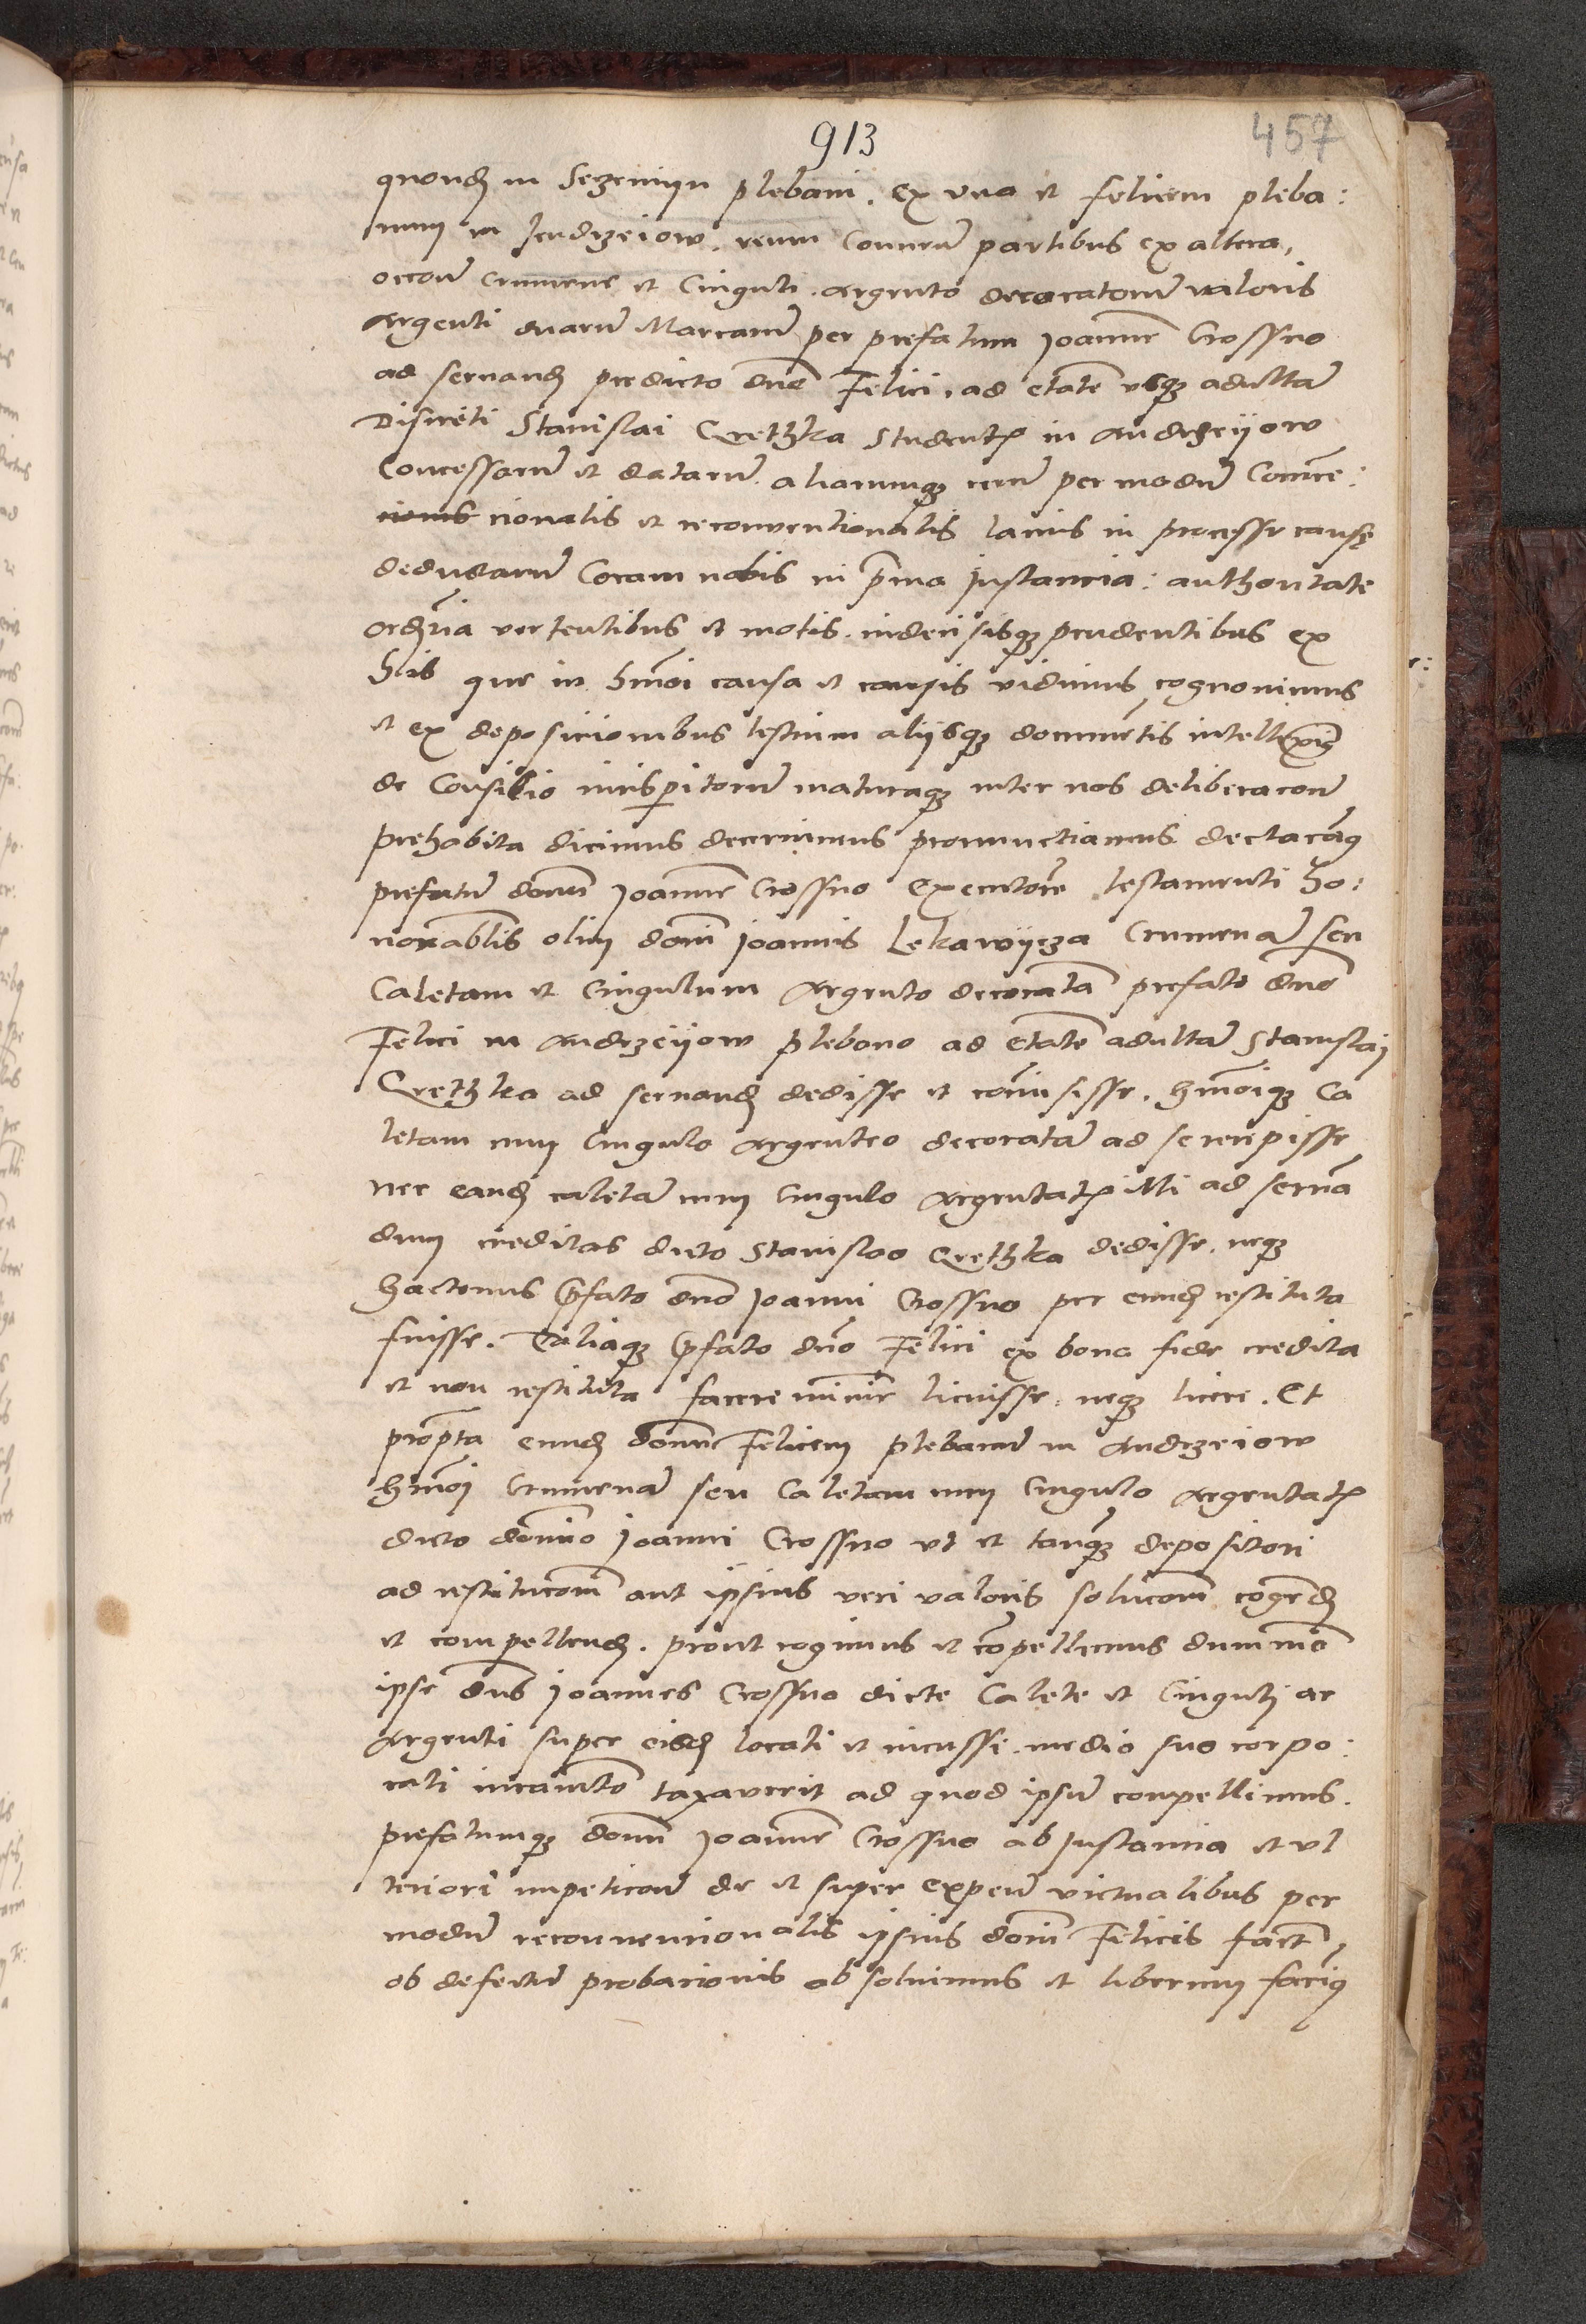 913
457
quond̃ in Sezemyn plebani . ex vna et felicem pleba:
num in Jendrzeiow . reum Conuen̄ partibus ex altera,
occon̄ crumene et Cinguli . Argento decoratorum̄ valoris
Argenti duarum̄ Marcarum̄ per prefatum Joannem̄ Crossno
ad seruand̃ predicto dno̅ Felici , ad etatem̄ vsq3 adultam̄
Discreti Stanislai Grethka Student in Andrzeiyow
Concessarum̄ et datarum̄ . aliarumq3 rerum̄ per modum̄ Conuen:
cionalis et reconuentionalis lacius in processu causę
deductarum̄ Coram nobis in p̄ma Instancia : authoritate
ord̄ria vertentibus et motis . indecisisq3 pendentibus ex
hiis que in hmōi causa et causis vidimus , cognouimus
et ex deposicionibus testium aliisq3 documentis intelleximq
de Consilio iurisperitorum̄ maturaq3 inter nos deliberacone̅
prehabita dicimus decernimus pronunctiamus declaramq
prefatum̄ donm̄ Joannem̄ Crossno executorem̄ testamenti ho:
norablis olim domi̅ Joannis Lekawycza Crumenam̄ seu
Caletam et Cingulum Argento decoratam̄ prefato dno̅
Felici in Andrzeiyow plebano ad etatem̄ adultam̄ Stanislaj
Grethka ad seruand̃ dedisse et com̄isisse . hmōiq3 Ca
letam cum Cingulo Argenteo decoratam̄ ad se recepisse
nec eand̃ caletam̄ cum Cingulo Argentat illi ad seruan̄
dum creditas dicto Stanislao Grethka dedisse . neq3
hactenus p̄fato dno̅ Joanni Crossno per eund̃ restituta
fuisse . Taliaq3 p̄fato dno̅ Felici ex bona fide credita
et non restituta facere minime̅ licuisse . neq3 licere . Et
prop̄ta eund̃ donm̄ Felicem plebanum̄ in Andrzeiow
hmōj Crumenam̄ seu Caletam cum Cingulo Argentat
dicto domi̅no Joanni Crossno vt et tanq̄3 depositori
ad restitucom̄ aut ipsius veri valoris solucom̄ cogend̃
et compellend̃ . prout cogimus et co̅pellimus dummo̅
ipse dn̄s Joannes Crossno dicte Calete et Cingulj ac
Argenti super eisd̃ locati et incussi . medio suo corpo:
rali iuramto̅ taxauerit ad quod ipsum̄ conpellimus .
prefatumq3 donm̄ Joannem̄ Crossno ab Instancia et vl
teriori impeticone̅ de et super expen̄ victualibus per
modum̄ reconuencionalis ipsius domi̅ Felicis fact ,
ob defectum̄ probacionis absoluimus et liberum faciq